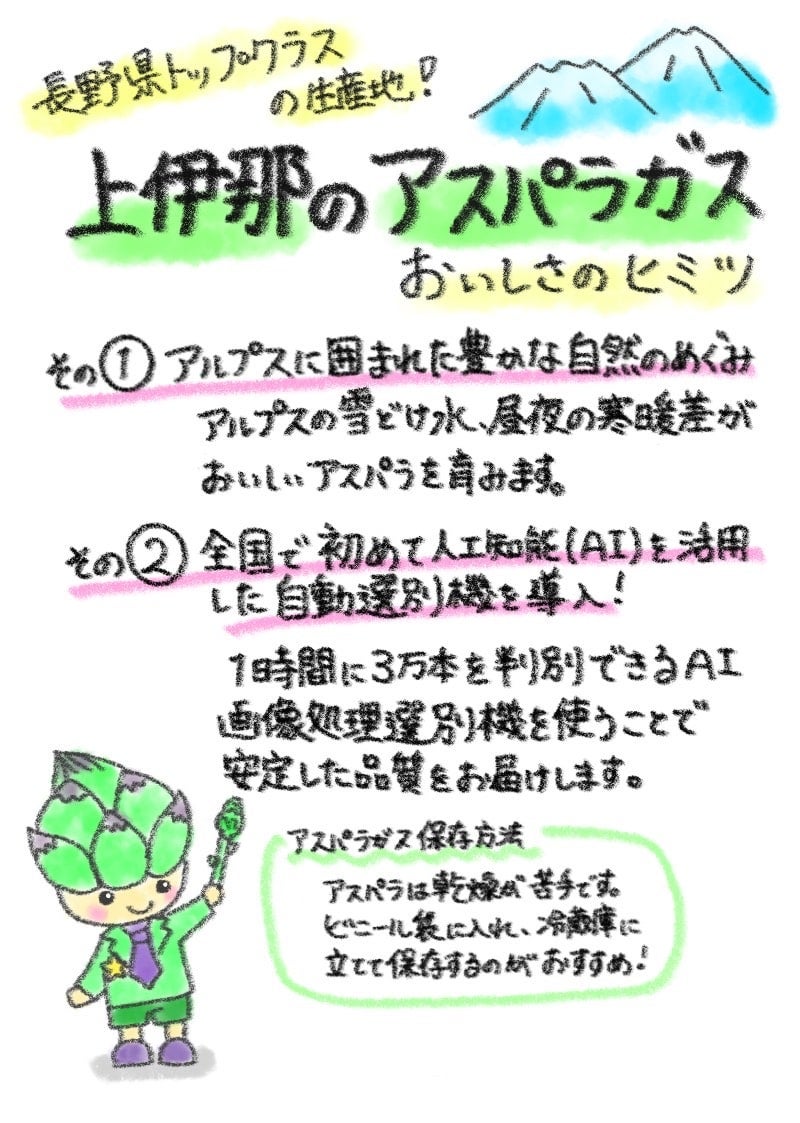 長野県トップクラス
の生産地!
上伊那のアスパラガス
おいしさのヒミツ
その① アルプスに囲まれた豊かな自然のめぐみ
アルプスの雪どけ水、昼夜の寒暖差が
おいしいアスパラを育みます。
その② 全国で初めて人工知能(AI)を活用
した自動選別機を導入!
1時間に3万本を判別できるAI
画像処理選別機を使うことで
安定した品質をお届けします。
アスパラガス保存方法
アスパラは乾燥が苦手です。
ビニール袋に入れ、冷蔵庫に
立てて保存するのがおすすめ!